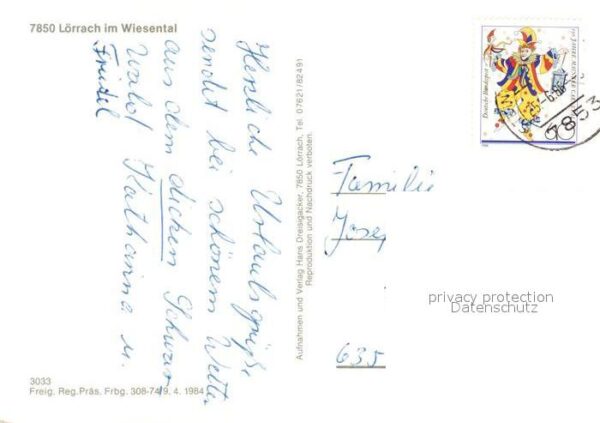 7850 Lörrach im Wiesental
Herzliche Urlaubsgrüße
sendet bei schönem Wetter
aus dem dicken Schwarz
Wald Katharina u.
Friedel
Aufnahmen und Verlag Hans Dreisigacker, 7850 Lörrach, Tel. 07621/82491
Reproduktion und Nachdruck verboten.
3033
Freig. Reg.Präs. Frbg. 308-74/9. 4. 1984
Deutsche Bundespost
7853
Familie
Josef
635
privacy protection
Datenschutz